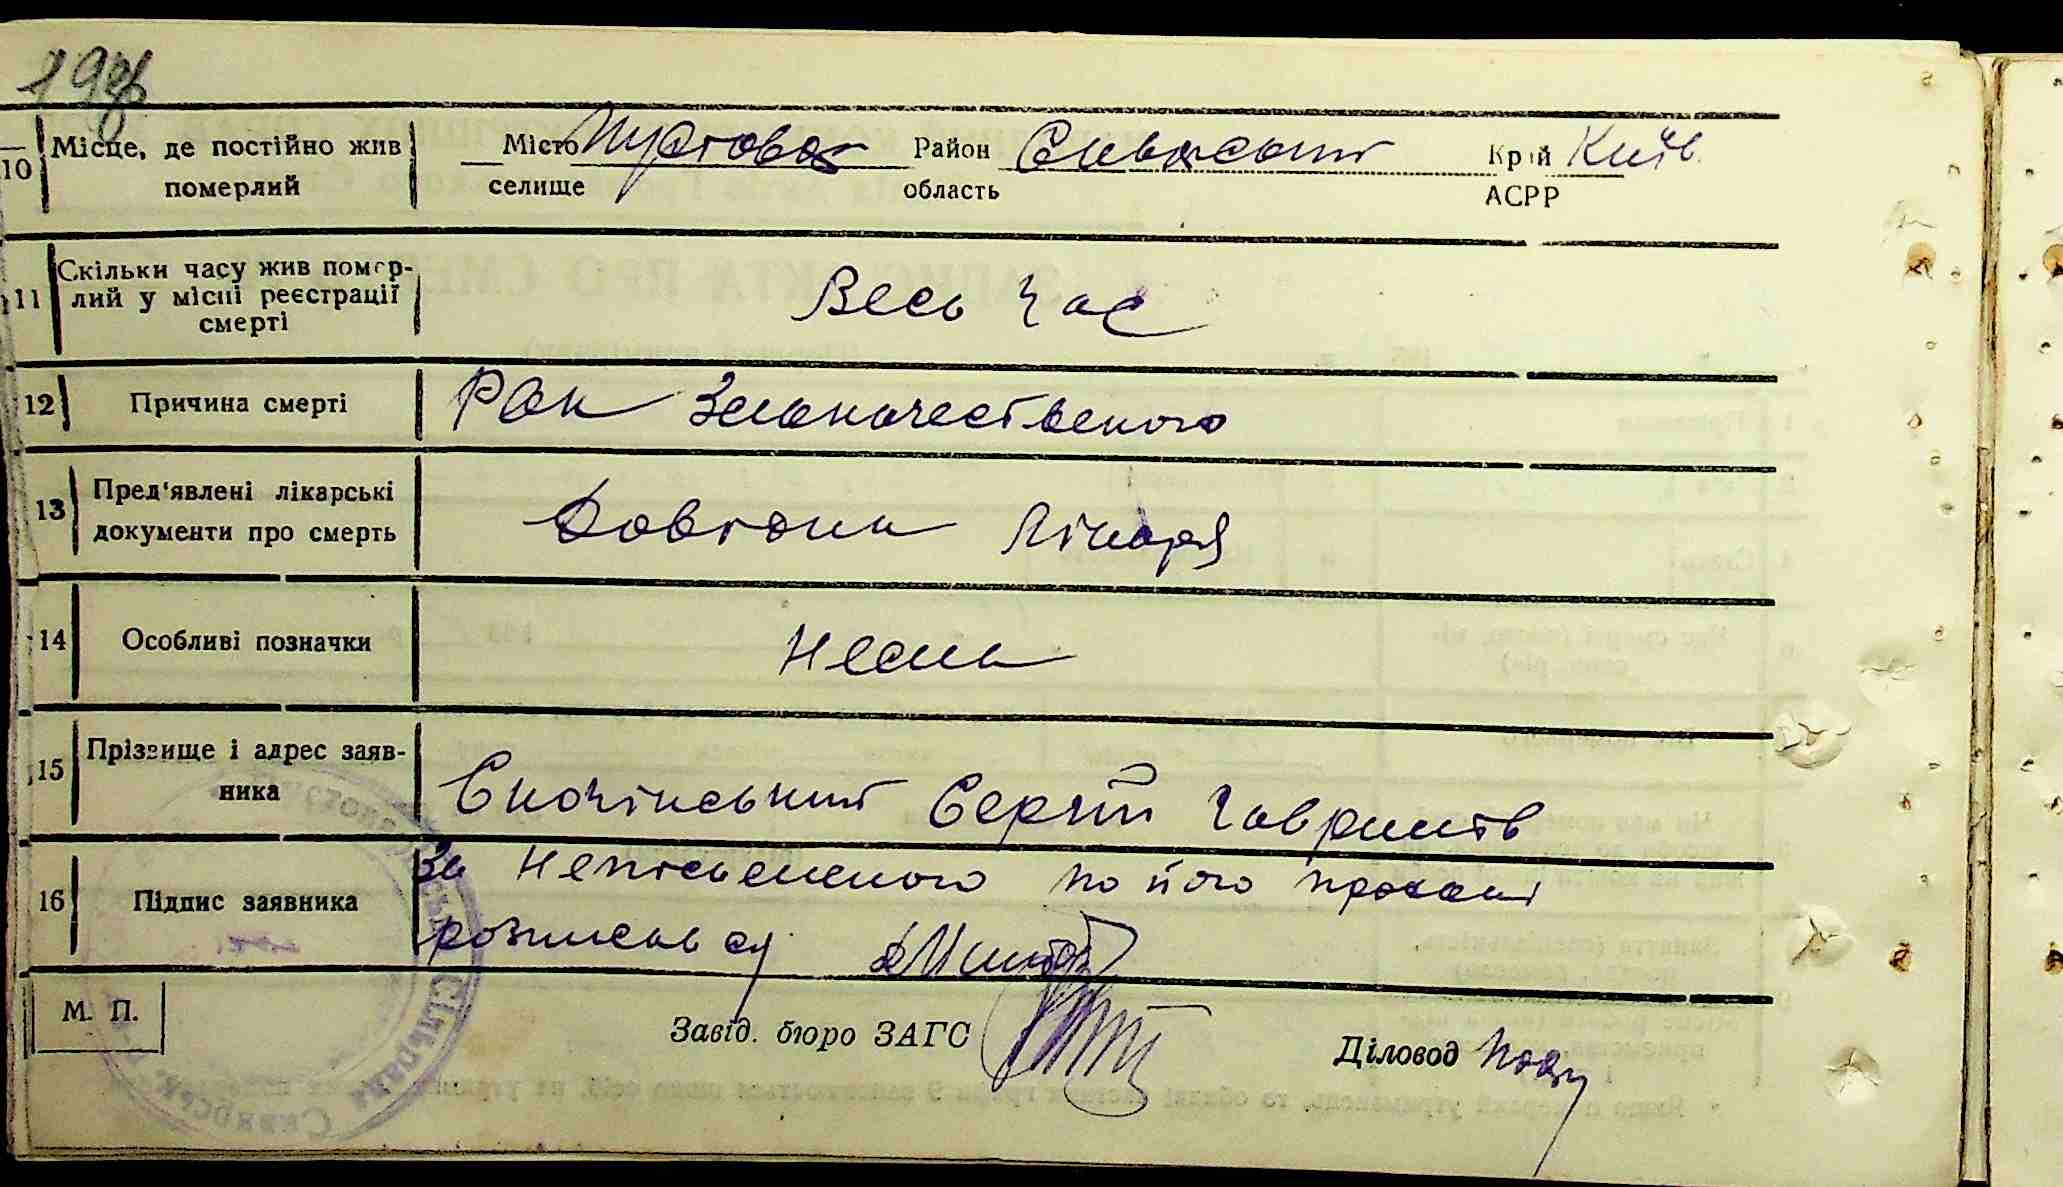 198
10 Місце, де постійно жив померлий
Місто селище Пустоварка Район область Сквирський Край АСРР Київ.
11 Скільки часу жив померлий у місці реєстрації смерті
Весь час
12 Причина смерті
Рак Злокачественого
13 Пред'явлені лікарські документи про смерть
Довідка лікаря
14 Особливі позначки
Нема
15 Прізвище і адрес заявника
Скочінський Сергій Гаврилів
16 Підпис заявника
За неписьменого по його проханi
розписався
М. П.
Завід. бюро ЗАГС
Діловод